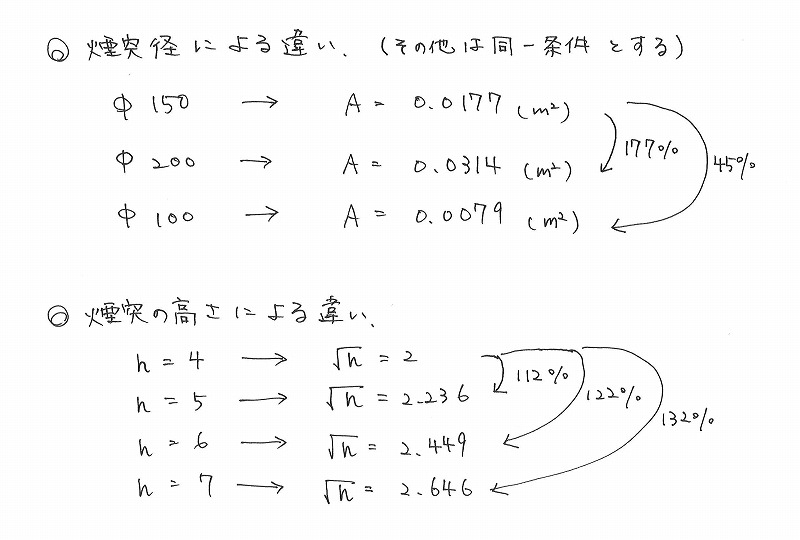 ◎ 煙突径による違い、(その他は同一条件とする)
φ 150 → A = 0.0177 (m²)
φ 200 → A = 0.0314 (m²)
177%
45%
φ 100 → A = 0.0079 (m²)
◎ 煙突の高さによる違い、
h = 4 → √h = 2
112%
h = 5 → √h = 2.236
122%
132%
h = 6 → √h = 2.449
h = 7 → √h = 2.646